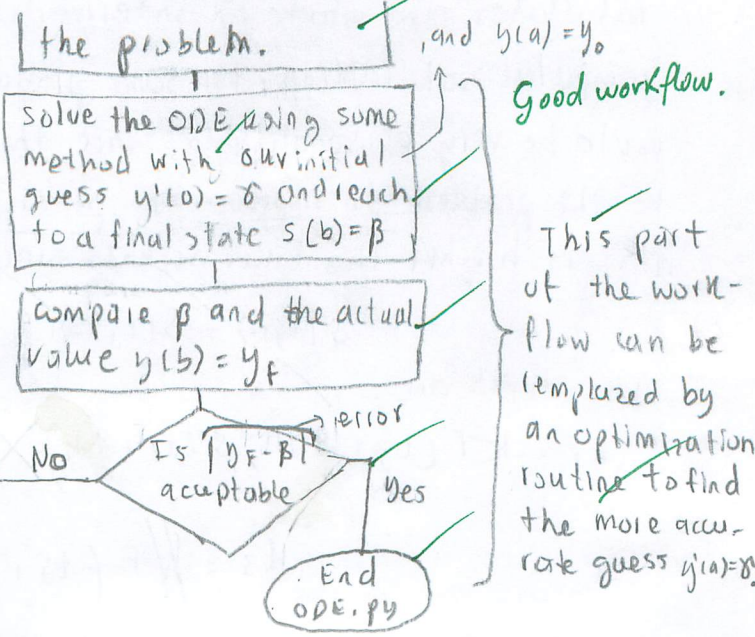 the problem.
,and y(a) = y₀
Good workflow.
solve the ODE using some
method with our initial
guess y'(0) = γ and reach
to a final state s(b) = β
compare β and the actual
value y(b) = y_F
error
Is |y_F - β|
acceptable
No
Yes
End
ODE.py
This part
of the work-
flow can be
remplazed by
an optimization
routine to find
the more accu-
rate guess y'(a) = γ.